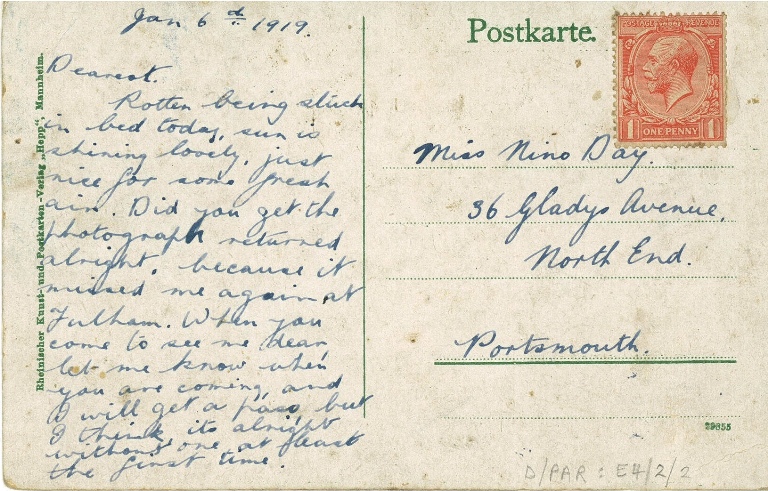 Jan 6th 1919.
Dearest.
Rotten being stuck
in bed today, sun is
shining lovely, just
nice for some fresh
air. Did you get the
photograph returned
alright, because it
missed me again, at
Fulham. When you
come to see me dear
let me know when
you are coming, and
I will get a pass, but
I think its alright
without one at least
the first time.
Rheinischer Kunst- und Postkarten-Verlag „Hepp“, Mannheim.
Postkarte.
POSTAGE REVENUE
1 ONE PENNY 1
Miss Nino Day.
36 Gladys Avenue,
North End.
Portsmouth.
29655
D/PAR : E4/2/2